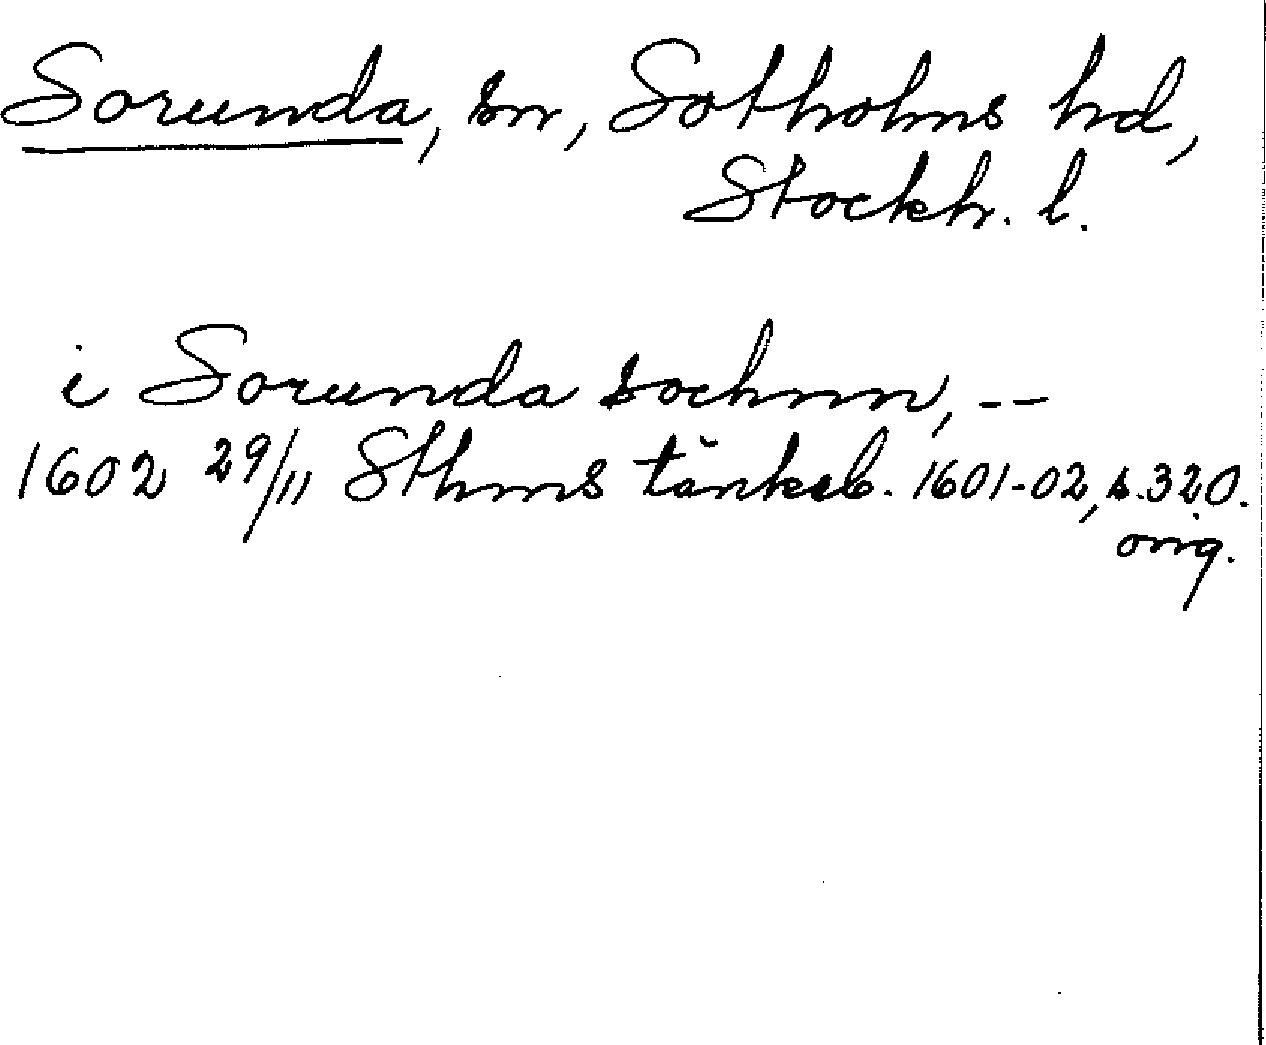 Sorunda, sn, Sotholms hd,
Stockh. l.
i Sorunda sochnn, --
1602 29/11 Sthms tänkeb. 1601-02, s. 320.
orig.